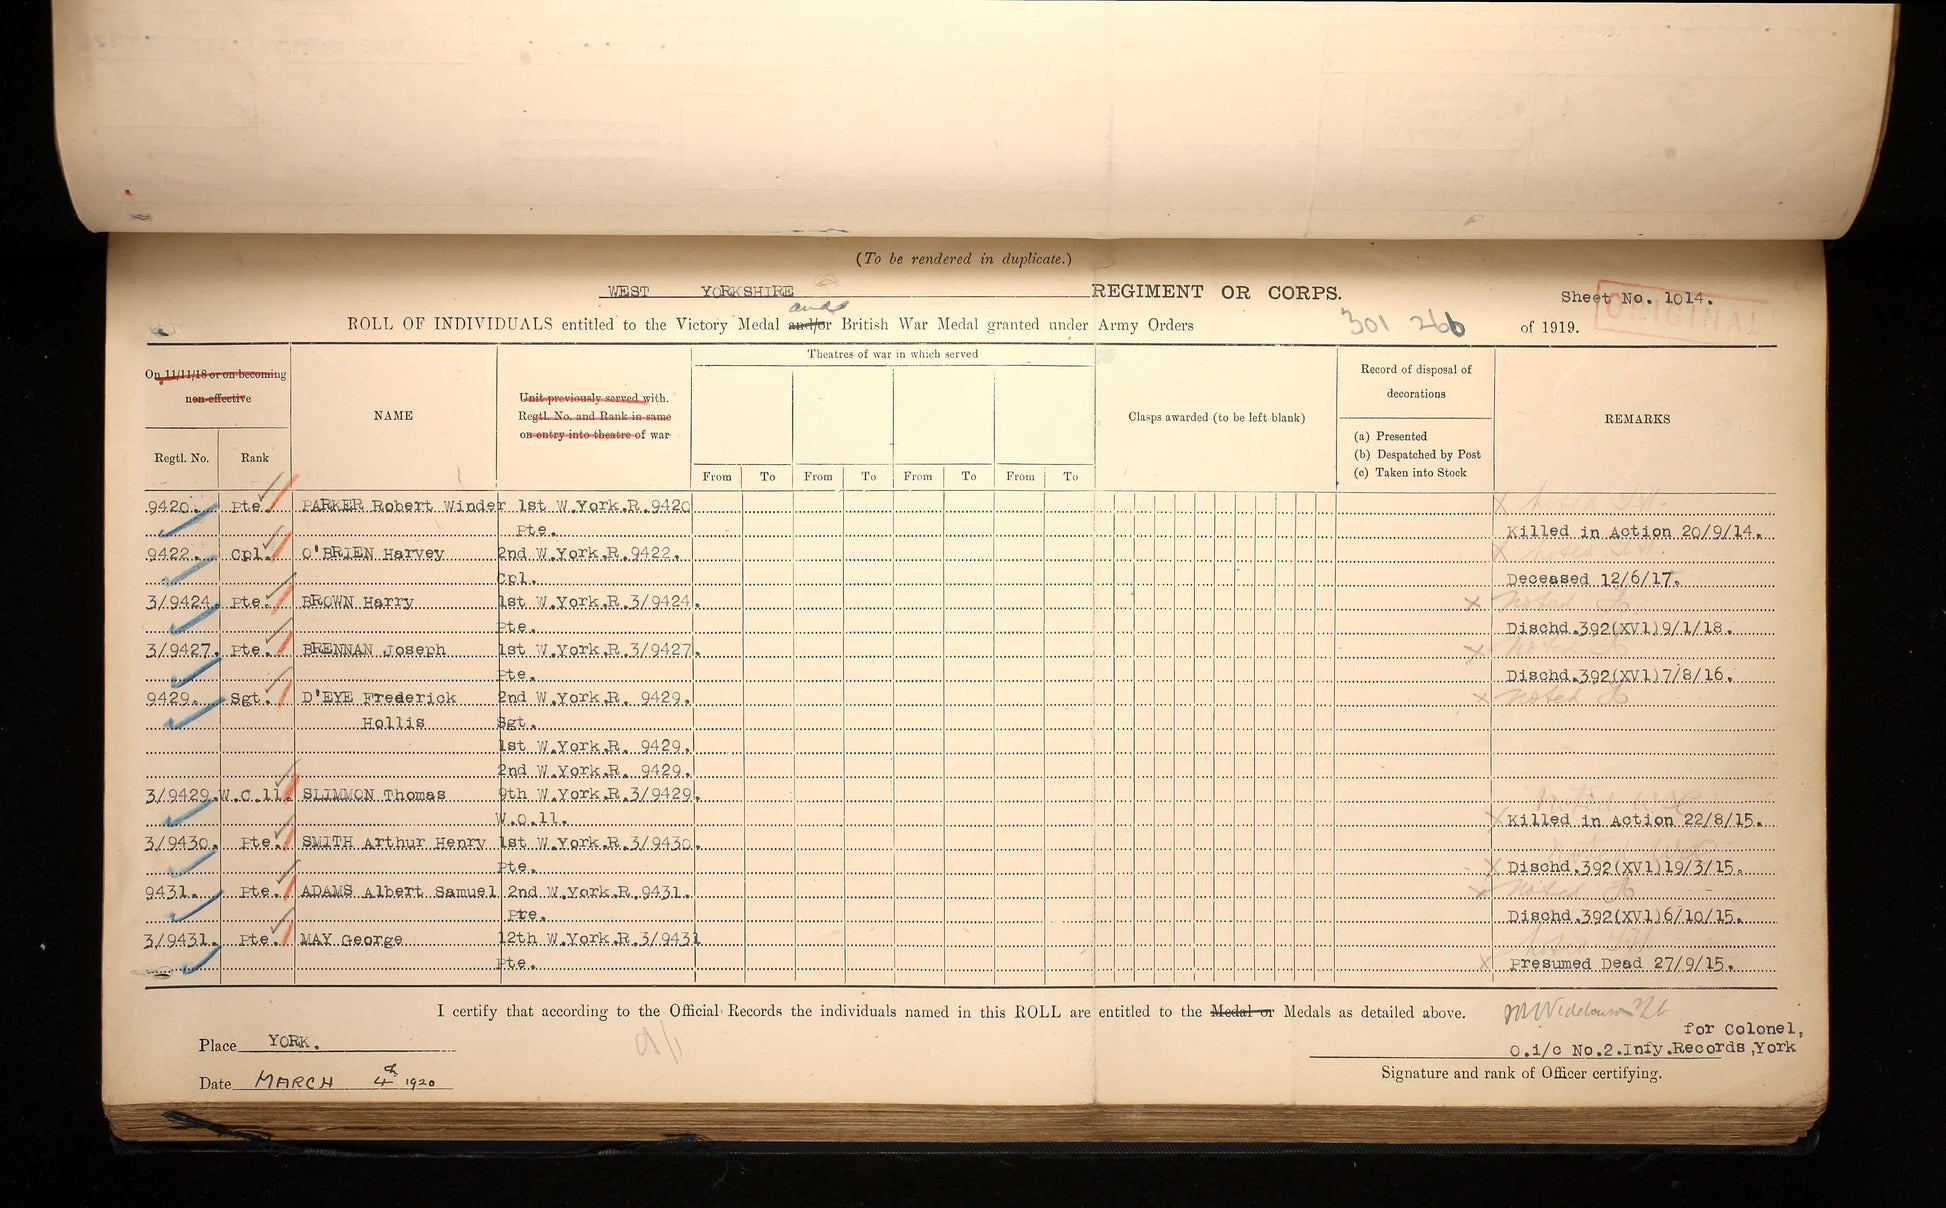 (To be rendered in duplicate.)
WEST YORKSHIRE REGIMENT OR CORPS.
Sheet No. 1014.
ORIGINAL
and
ROLL OF INDIVIDUALS entitled to the Victory Medal and/or British War Medal granted under Army Orders 301 266 of 1919.
On 11/11/18 or on becoming
non-effective
Regtl. No. Rank
NAME
Unit previously served with.
Regtl. No. and Rank in same
on entry into theatre of war
Theatres of war in which served
From To From To From To From To
Clasps awarded (to be left blank)
Record of disposal of
decorations
(a) Presented
(b) Despatched by Post
(c) Taken into Stock
REMARKS
9420. Pte. PARKER Robert Winder 1st W.York.R.9420 X Noted
Pte. Killed in Action 20/9/14.
9422. Cpl. O'BRIEN Harvey 2nd W.York.R.9422. X Noted
Cpl. Deceased 12/6/17.
3/9424. Pte. BROWN Harry 1st W.York.R.3/9424. X Noted
Pte. Dischd.392(XVl)9/1/18.
3/9427. Pte. BRENNAN Joseph 1st W.York.R.3/9427. X Noted
Pte. Dischd.392(XVl)7/8/16.
9429. Sgt. D'EYE Frederick 2nd W.York.R. 9429. X Noted
Hollis Sgt.
1st W.York.R. 9429.
2nd W.York.R. 9429.
3/9429. W.O.ll. SLIMMON Thomas 9th W.York.R.3/9429. Noted
W.O.ll. X Killed in Action 22/8/15.
3/9430. Pte. SMITH Arthur Henry 1st W.York.R.3/9430.
Pte. X Dischd.392(XVl)19/3/15.
9431. Pte. ADAMS Albert Samuel 2nd.W.York.R.9431. X Noted
Pre. Dischd.392(XVl)6/10/15.
3/9431. Pte. MAY George 12th W.York.R.3/9431 Noted
Pte. X Presumed Dead 27/9/15.
I certify that according to the Official Records the individuals named in this ROLL are entitled to the Medal or Medals as detailed above.
for Colonel,
Place YORK.
O.i/c No.2.Infy.Records,York
Date MARCH 4th 1920
Signature and rank of Officer certifying.